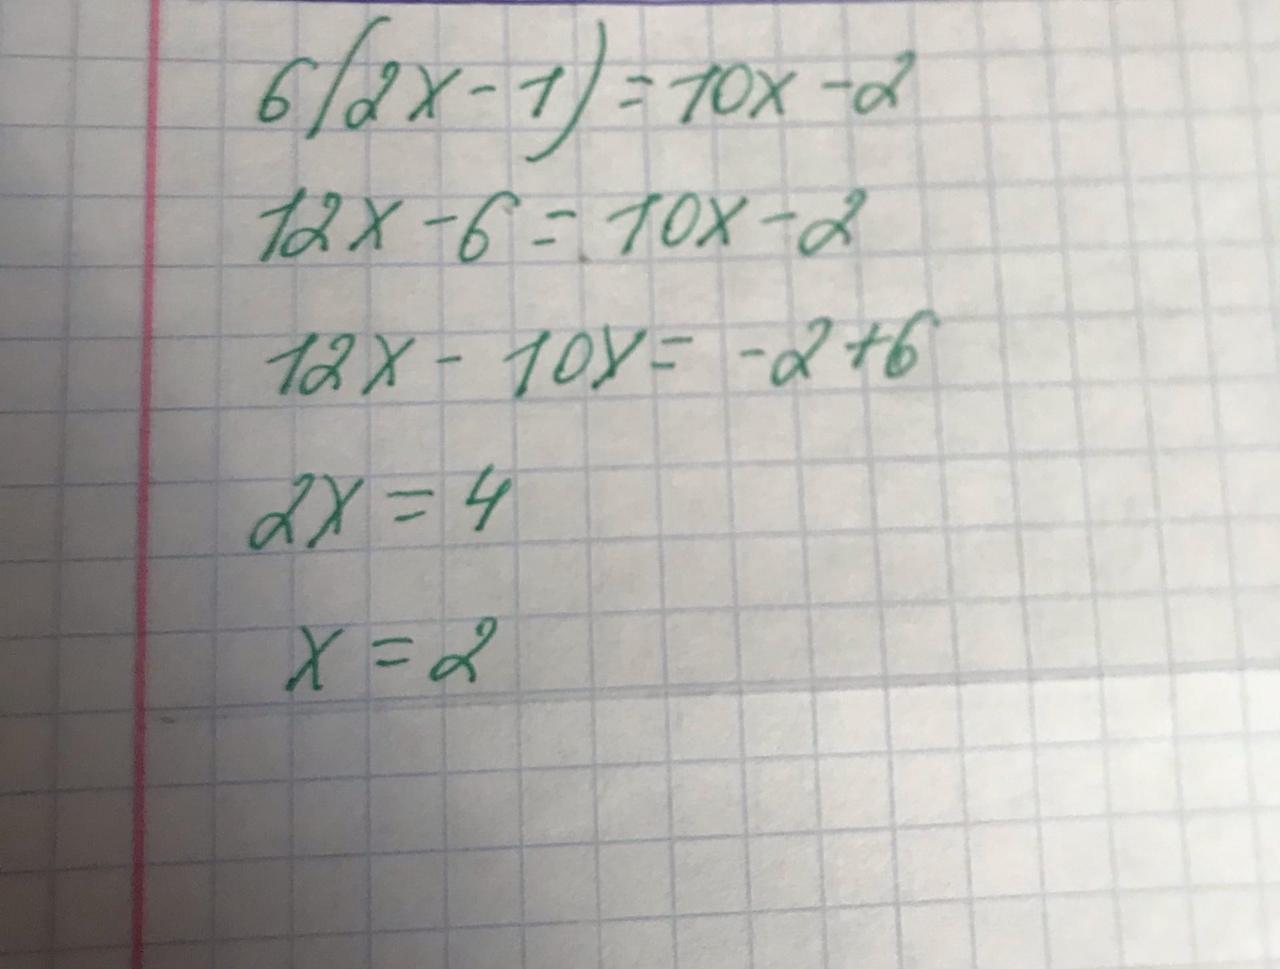 6(2x-1)=10x-2
12x-6=10x-2
12x-10x=-2+6
2x=4
x=2